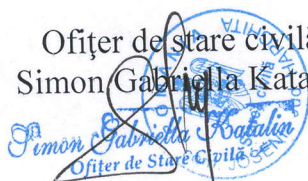 Ofiţer de stare civilă
Simon Gabriella Kata
Simon Gabriella Katalin
Ofiter de Stare Civilă